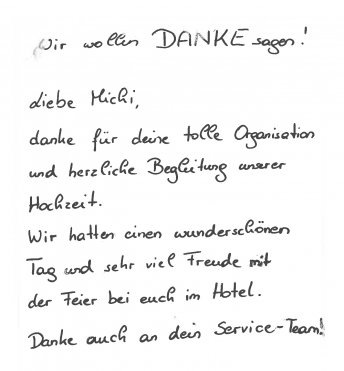 Wir wollen DANKE sagen!
Liebe Michi,
danke für deine tolle Organisation
und herzliche Begleitung unserer
Hochzeit.
Wir hatten einen wunderschönen
Tag und sehr viel Freude mit
der Feier bei euch im Hotel.
Danke auch an dein Service-Team!